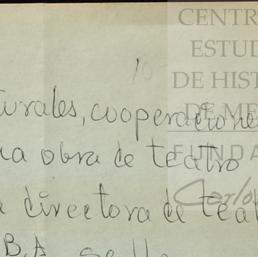 CENTR
ESTUD
DE HIST
DE ME
FUNDA
Carlo
10
turales, cooperacione
na obra de teatro
a directora de teat
B.A. se lla